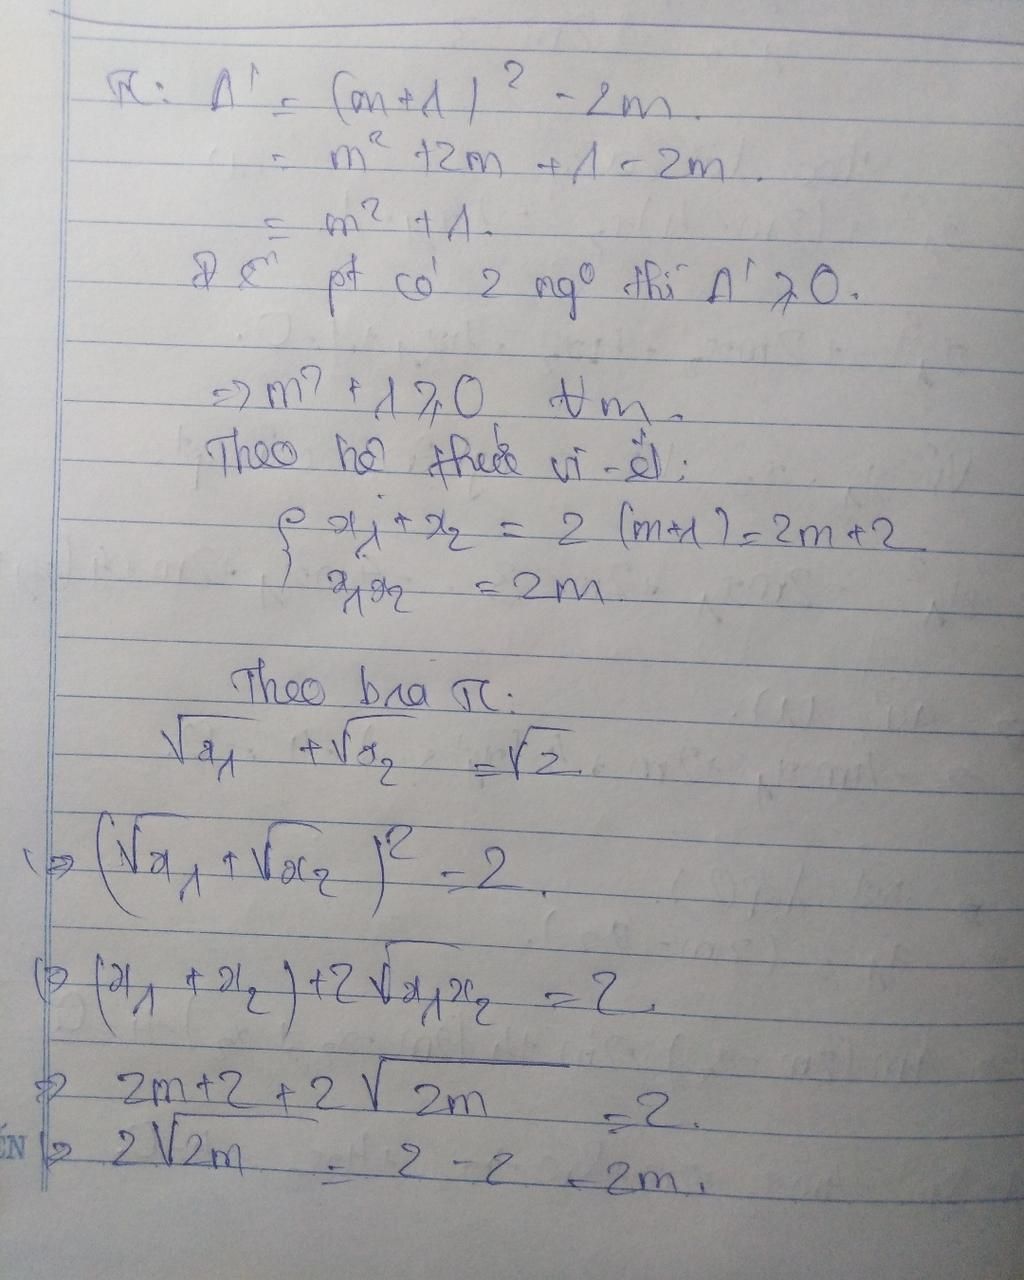 Tc: Δ' = (m+1)² - 2m.
= m² + 2m + 1 - 2m.
= m² + 1.
Để pt có 2 ngº thì Δ' ⩾ 0.
=> m² + 1 ⩾ 0 ∀m.
Theo hệ thức vi-ét:
{ x₁ + x₂ = 2 (m+1) = 2m + 2
x₁x₂ = 2m
Theo bra Tc:
√x₁ + √x₂ = √2
<=> (√x₁ + √x₂)² = 2.
<=> (x₁ + x₂) + 2√x₁x₂ = 2.
=> 2m + 2 + 2√2m = 2.
ẾN
<=> 2√2m = 2 - 2 - 2m.